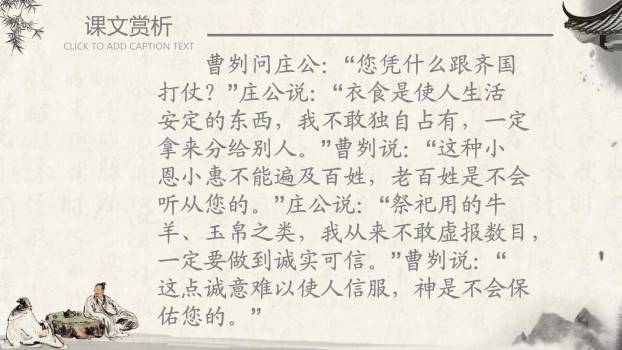 课文赏析
CLICK TO ADD CAPTION TEXT
曹刿问庄公：“您凭什么跟齐国
打仗？”庄公说：“衣食是使人生活
安定的东西，我不敢独自占有，一定
拿来分给别人。”曹刿说：“这种小
恩小惠不能遍及百姓，老百姓是不会
听从您的。”庄公说：“祭祀用的牛
羊、玉帛之类，我从来不敢虚报数目，
一定要做到诚实可信。”曹刿说：“
这点诚意难以使人信服，神是不会保
佑您的。”